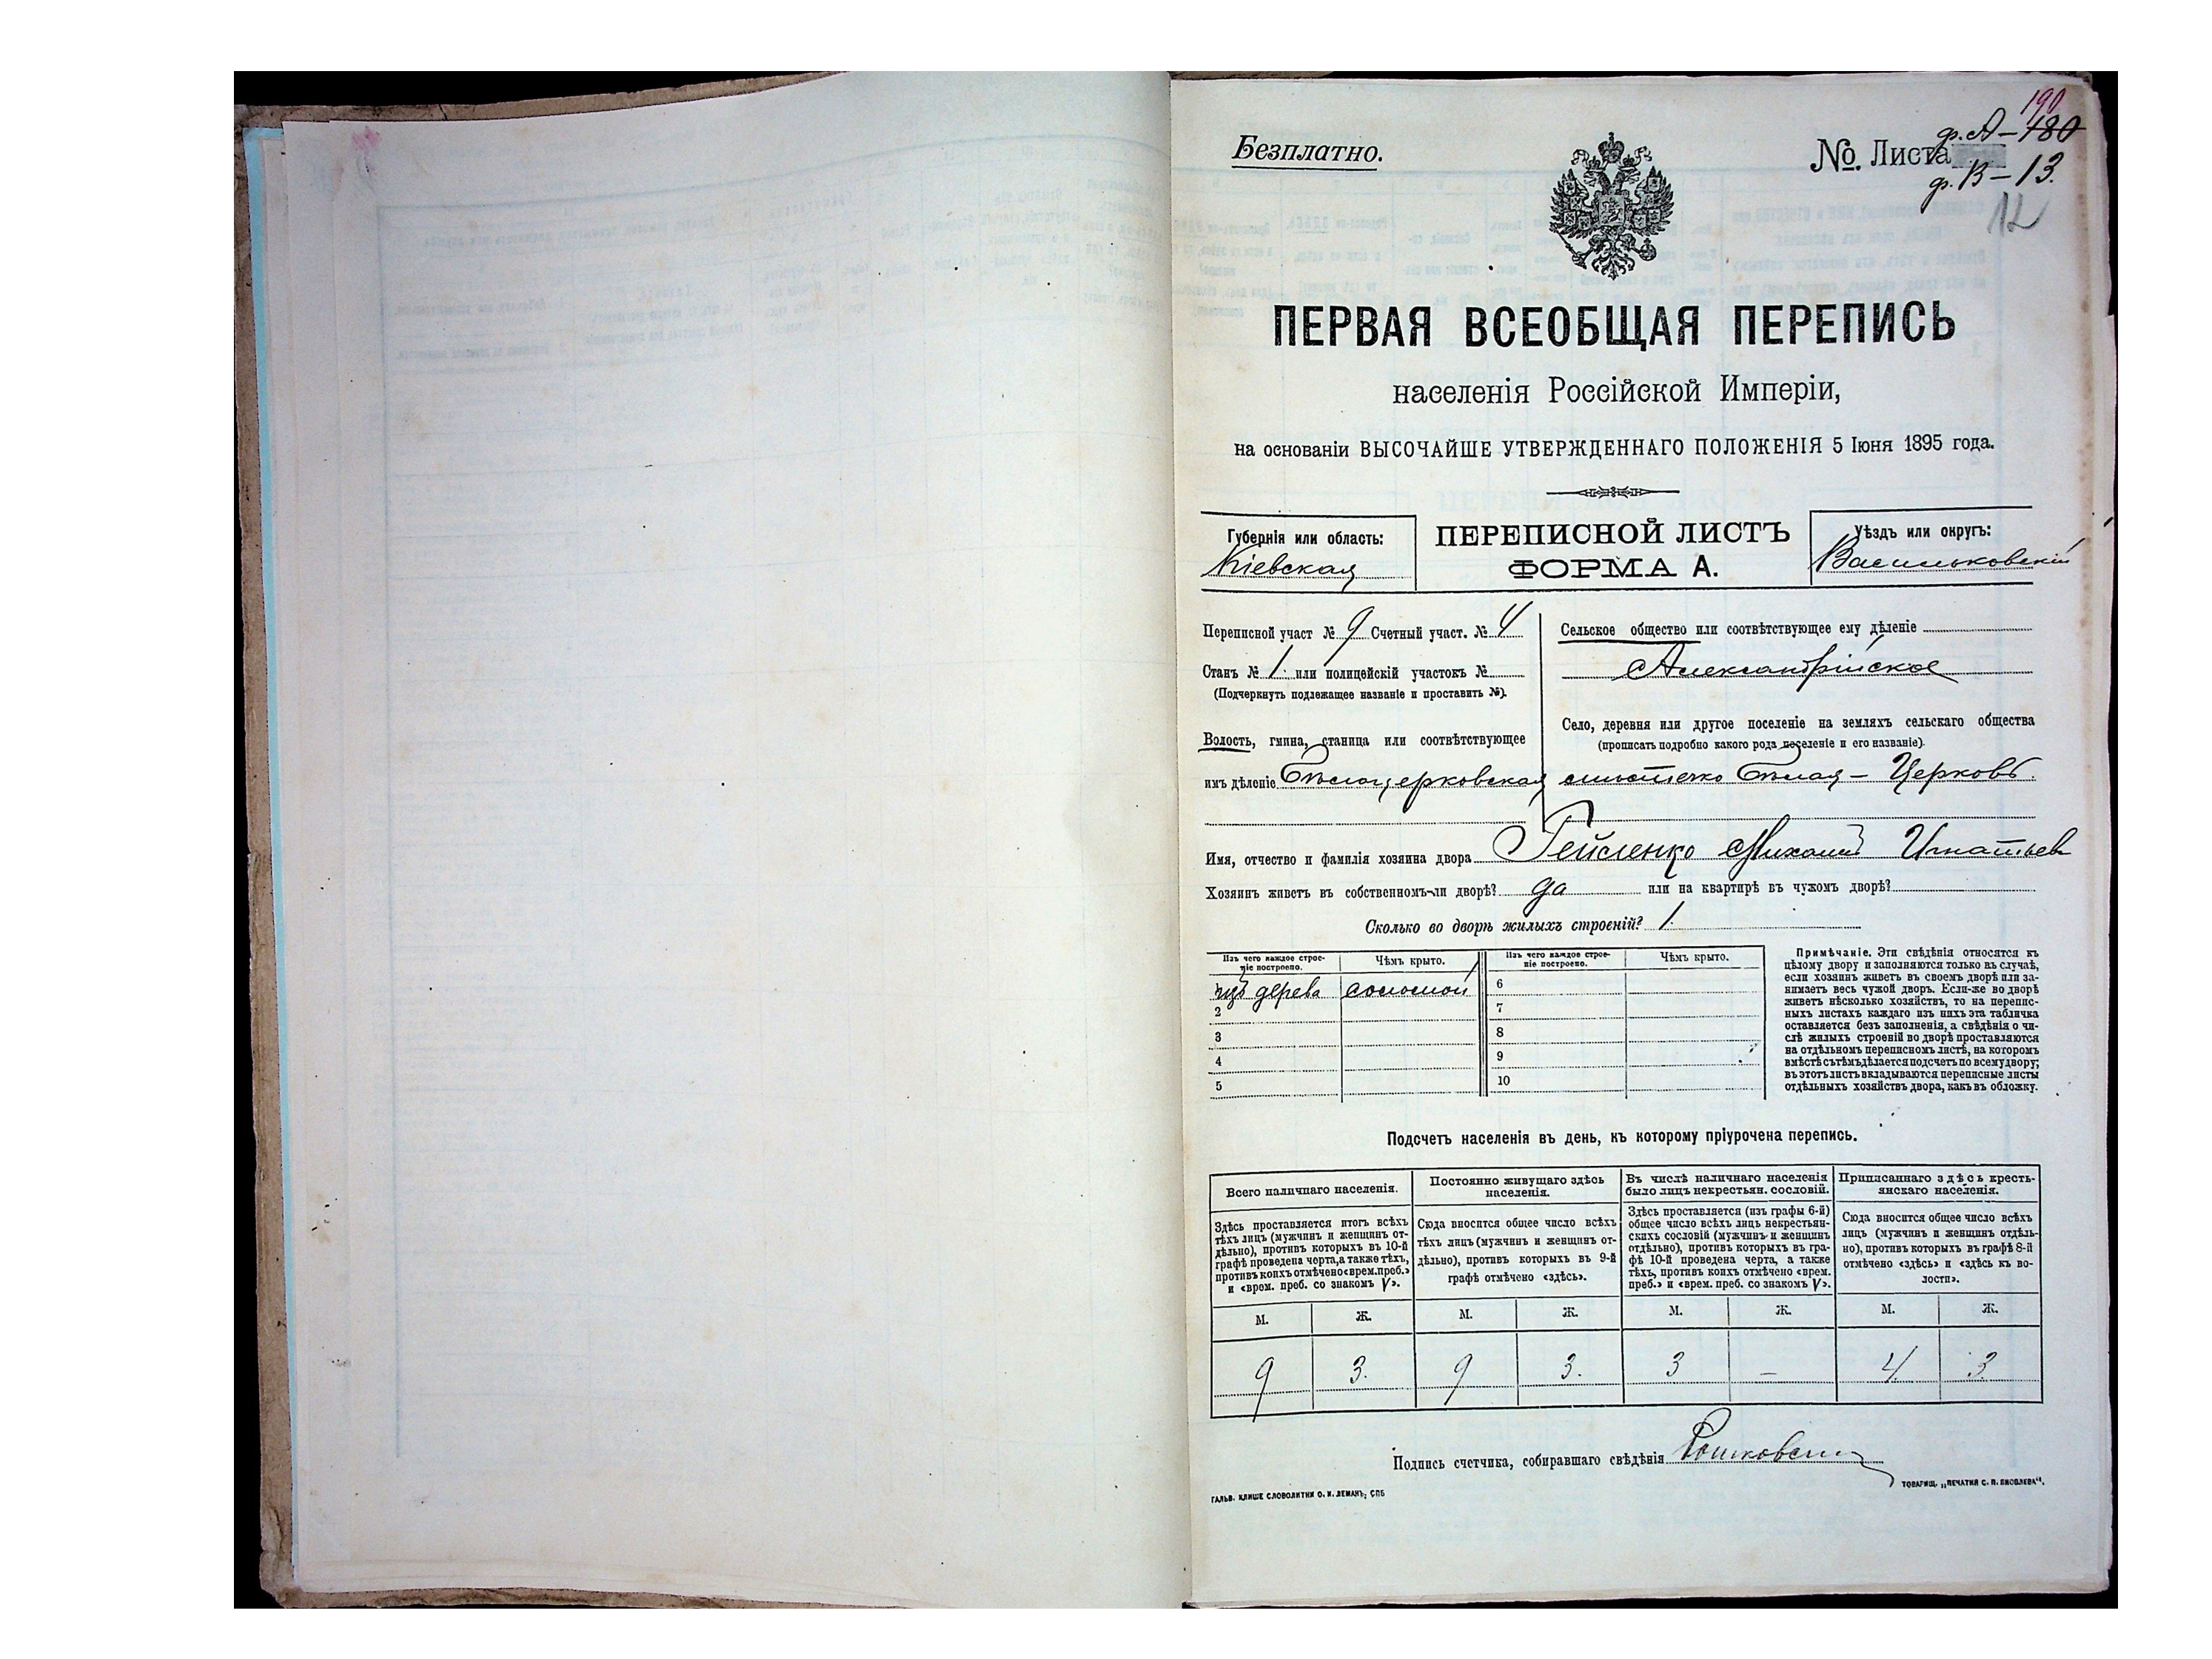 190
ф. А — 180
Безплатно.
№. Листа
ф. В — 13.
12
ПЕРВАЯ ВСЕОБЩАЯ ПЕРЕПИСЬ
населенія Россійской Имперіи,
на основаніи ВЫСОЧАЙШЕ УТВЕРЖДЕННАГО ПОЛОЖЕНІЯ 5 Іюня 1895 года.
Губернія или область:
Кіевская
ПЕРЕПИСНОЙ ЛИСТЪ
ФОРМА А.
Уѣздъ или округъ:
Васильковскій
Переписной участ № 9 Счетный участ. № 4
Станъ № 1. или полицейскій участокъ №
(Подчеркнуть подлежащее названіе и проставить №).
Волость, гмина, станица или соотвѣтствующее
имъ дѣленіе Бѣлоцерковская
Сельское общество или соотвѣтствующее ему дѣленіе
Александрійское
Село, деревня или другое поселеніе на земляхъ сельскаго общества
(прописать подробно какого рода поселеніе и его названіе).
мѣстечко Бѣлая – Церковь.
Имя, отчество и фамилія хозяина двора Гейсленко Михаилъ Игнатьев
Хозяинъ живетъ въ собственномъ-ли дворѣ? да или на квартирѣ въ чужомъ дворѣ?
Сколько во дворѣ жилыхъ строеній? 1.
Изъ чего каждое строе-
ніе построено.
Чѣмъ крыто.
Изъ чего каждое строе-
ніе построено.
Чѣмъ крыто.
изъ дерева соломой 6
2 7
3 8
4 9
5 10
Примѣчаніе. Эти свѣдѣнія относятся къ
цѣлому двору и заполняются только въ случаѣ,
если хозяинъ живетъ въ своемъ дворѣ или за-
нимаетъ весь чужой дворъ. Если-же во дворѣ
живетъ нѣсколько хозяйствъ, то на перепис-
ныхъ листахъ каждаго изъ нихъ эта табличка
оставляется безъ заполненія, а свѣдѣнія о чи-
слѣ жилыхъ строеній во дворѣ проставляются
на отдѣльномъ переписномъ листѣ, на которомъ
вмѣстѣ съ тѣмъ дѣлается подсчетъ по всему двору;
въ этотъ листъ вкладываются переписные листы
отдѣльныхъ хозяйствъ двора, какъ въ обложку.
Подсчетъ населенія въ день, къ которому пріурочена перепись.
Всего наличнаго населенія.
Постоянно живущаго здѣсь
населенія.
Въ числѣ наличнаго населенія
было лицъ некрестьян. сословій.
Приписаннаго здѣсь кресть-
янскаго населенія.
Здѣсь проставляется итогъ всѣхъ
тѣхъ лицъ (мужчинъ и женщинъ от-
дѣльно), противъ которыхъ въ 10-й
графѣ проведена черта, а также тѣхъ,
противъ коихъ отмѣчено «врем. преб.»
и «врем. преб. со знакомъ V».
Сюда вносится общее число всѣхъ
тѣхъ лицъ (мужчинъ и женщинъ от-
дѣльно), противъ которыхъ въ 9-й
графѣ отмѣчено «здѣсь».
Здѣсь проставляется (изъ графы 6-й)
общее число всѣхъ лицъ некрестьян-
скихъ сословій (мужчинъ и женщинъ
отдѣльно), противъ которыхъ въ гра-
фѣ 10-й проведена черта, а также
тѣхъ, противъ коихъ отмѣчено «врем.
преб.» и «врем. преб. со знакомъ V».
Сюда вносится общее число всѣхъ
лицъ (мужчинъ и женщинъ отдѣль-
но), противъ которыхъ въ графѣ 8-й
отмѣчено «здѣсь» и «здѣсь къ во-
лости».
М. Ж. М. Ж. М. Ж. М. Ж.
9 3. 9 3. 3 — 4 3
Подпись счетчика, собиравшаго свѣдѣнія
ГАЛЬВ. КЛИШЕ СЛОВОЛИТНИ О. И. ЛЕМАНЪ, СПБ
ТОВАРИЩ. „ПЕЧАТНЯ С. П. ЯКОВЛЕВА“.